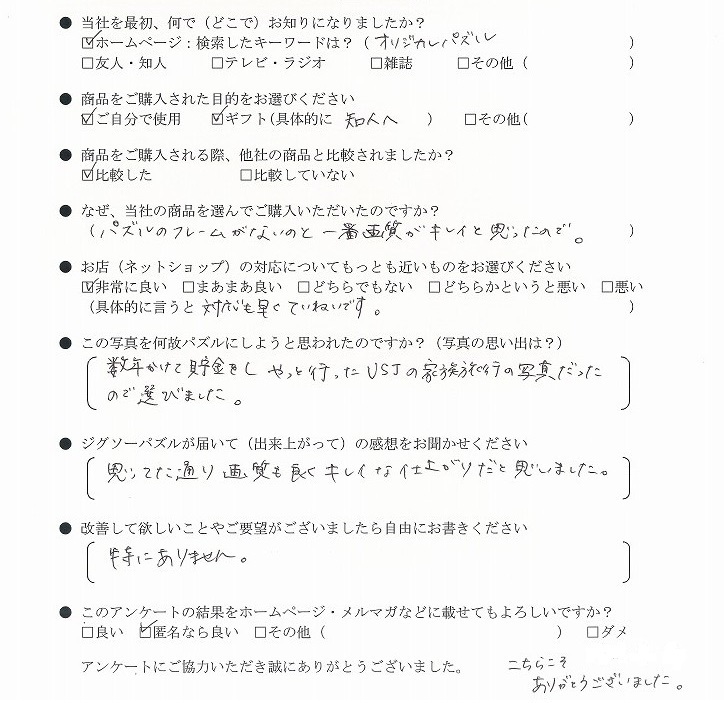 ● 当社を最初、何で（どこで）お知りになりましたか？
☑ホームページ：検索したキーワードは？（オリジナルパズル）
□友人・知人 □テレビ・ラジオ □雑誌 □その他（ ）
● 商品をご購入された目的をお選びください
☑ご自分で使用 ☑ギフト(具体的に 知人へ ) □その他( )
● 商品をご購入される際、他社の商品と比較されましたか？
☑比較した □比較していない
● なぜ、当社の商品を選んでご購入いただいたのですか？
（パズルのフレームがないのと一番画質がキレイと思ったので。）
● お店（ネットショップ）の対応についてもっとも近いものをお選びください
☑非常に良い □まあまあ良い □どちらでもない □どちらかというと悪い □悪い
（具体的に言うと 対応も早くていねいです。）
● この写真を何故パズルにしようと思われたのですか？（写真の思い出は？）
数年かけて貯金をし やっと行った USJの家族旅行の写真だった
ので選びました。
● ジグソーパズルが届いて（出来上がって）の感想をお聞かせください
思ってた通り画質も良くキレイな仕上がりだと思いました。
● 改善して欲しいことやご要望がございましたら自由にお書きください
特にありません。
● このアンケートの結果をホームページ・メルマガなどに載せてもよろしいですか？
□良い ☑匿名なら良い □その他（ ） □ダメ
アンケートにご協力いただき誠にありがとうございました。
こちらこそ
ありがとうございました。